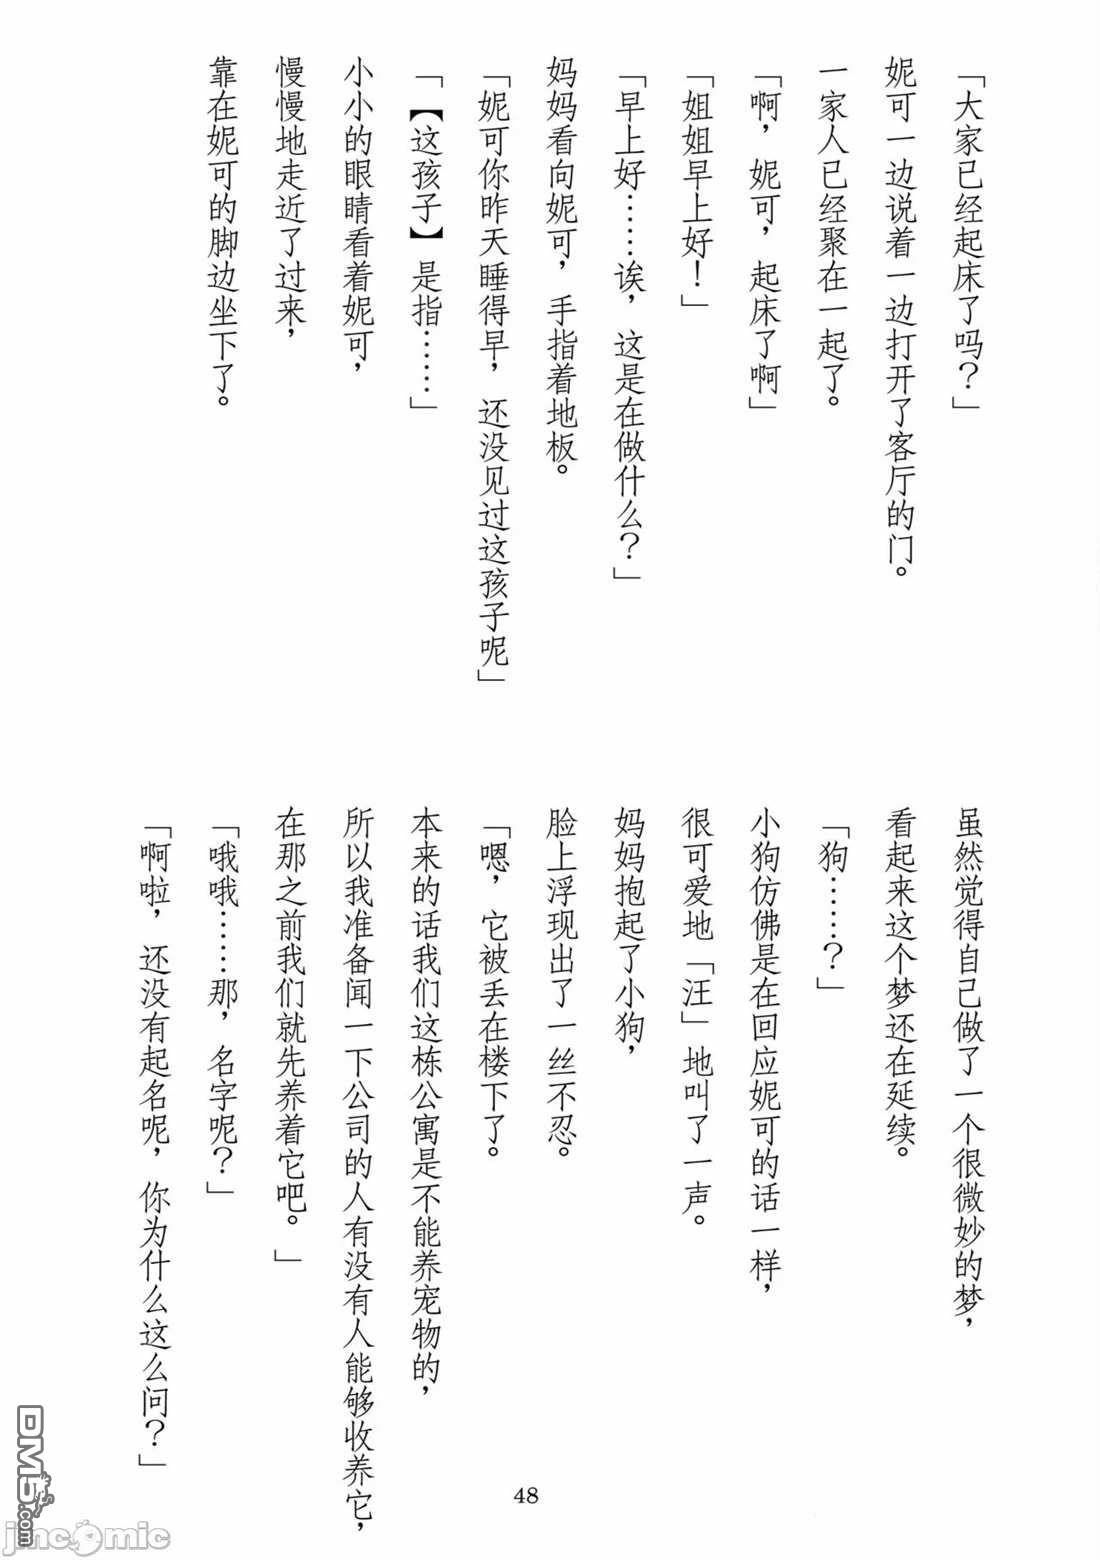 「大家已经起床了吗？」
妮可一边说着一边打开了客厅的门。
一家人已经聚在一起了。
「啊，妮可，起床了啊」
「姐姐早上好！」
「早上好……诶，这是在做什么？」
妈妈看向妮可，手指着地板。
「妮可你昨天睡得早，还没见过这孩子呢」
「【这孩子】是指……」
小小的眼睛看着妮可，
慢慢地走近了过来，
靠在妮可的脚边坐下了。
虽然觉得自己做了一个很微妙的梦，
看起来这个梦还在延续。
「狗……？」
小狗仿佛是在回应妮可的话一样，
很可爱地「汪」地叫了一声。
妈妈抱起了小狗，
脸上浮现出了一丝不忍。
「嗯，它被丢在楼下了。
本来的话我们这栋公寓是不能养宠物的，
所以我准备闻一下公司的人有没有人能够收养它，
在那之前我们就先养着它吧。」
「哦哦……那，名字呢？」
「啊啦，还没有起名呢，你为什么这么问？」
48
DM5.com
jmcomic